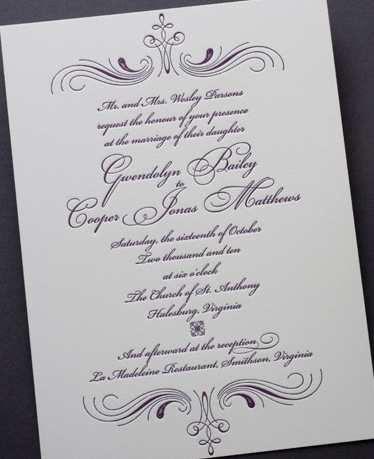 Mr. and Mrs. Wesley Parsons
request the honour of your presence
at the marriage of their daughter
Gwendolyn Bailey
to
Cooper Jonas Matthews
Saturday, the sixteenth of October
Two thousand and ten
at six o'clock
The Church of St. Anthony
Halesburg, Virginia
And afterward at the reception
La Madeleine Restaurant, Smithson, Virginia